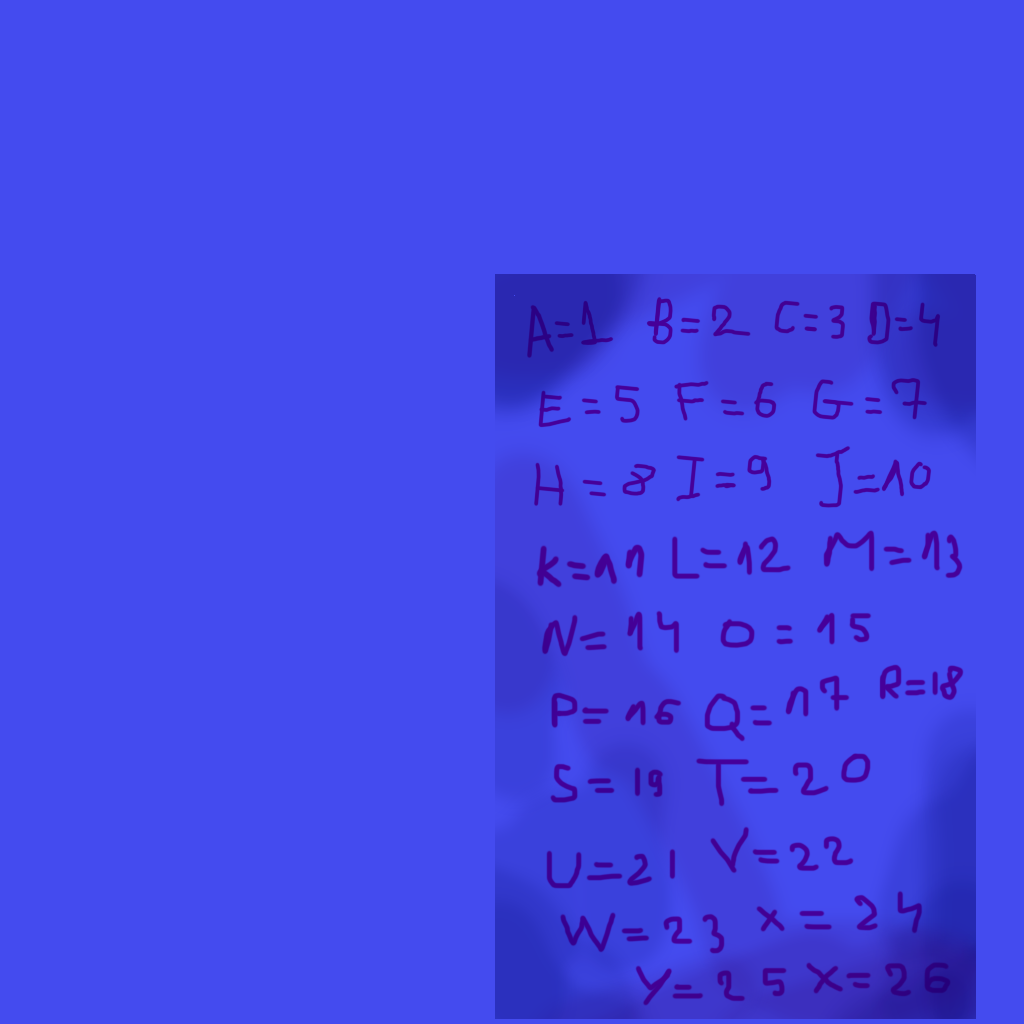 A=1 B=2 C=3 D=4
E=5 F=6 G=7
H=8 I=9 J=10
K=11 L=12 M=13
N=14 O=15
P=16 Q=17 R=18
S=19 T=20
U=21 V=22
W=23 X=24
Y=25 X=26